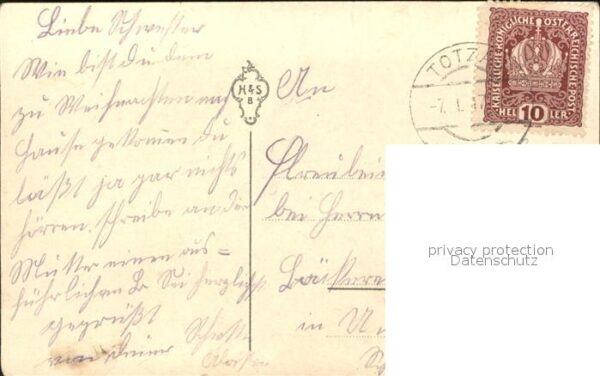 Liebe Schwester
Wie bist du dem
zu Weihnachten nach
Hause gekommen du
läßt ja gar nichts
hörren. schreibe an die
Mutter einen aus=
führlichen Br Sei herzlichst
gegrüßt
von deiner
H & S
B
An
Freulein
bei Herrn
Bäckere
in
TOTZ
-7. I. 17
KAISERLICHE KÖNIGLICHE ÖSTERREICHISCHE POST
HEL 10 LER
privacy protection
Datenschutz